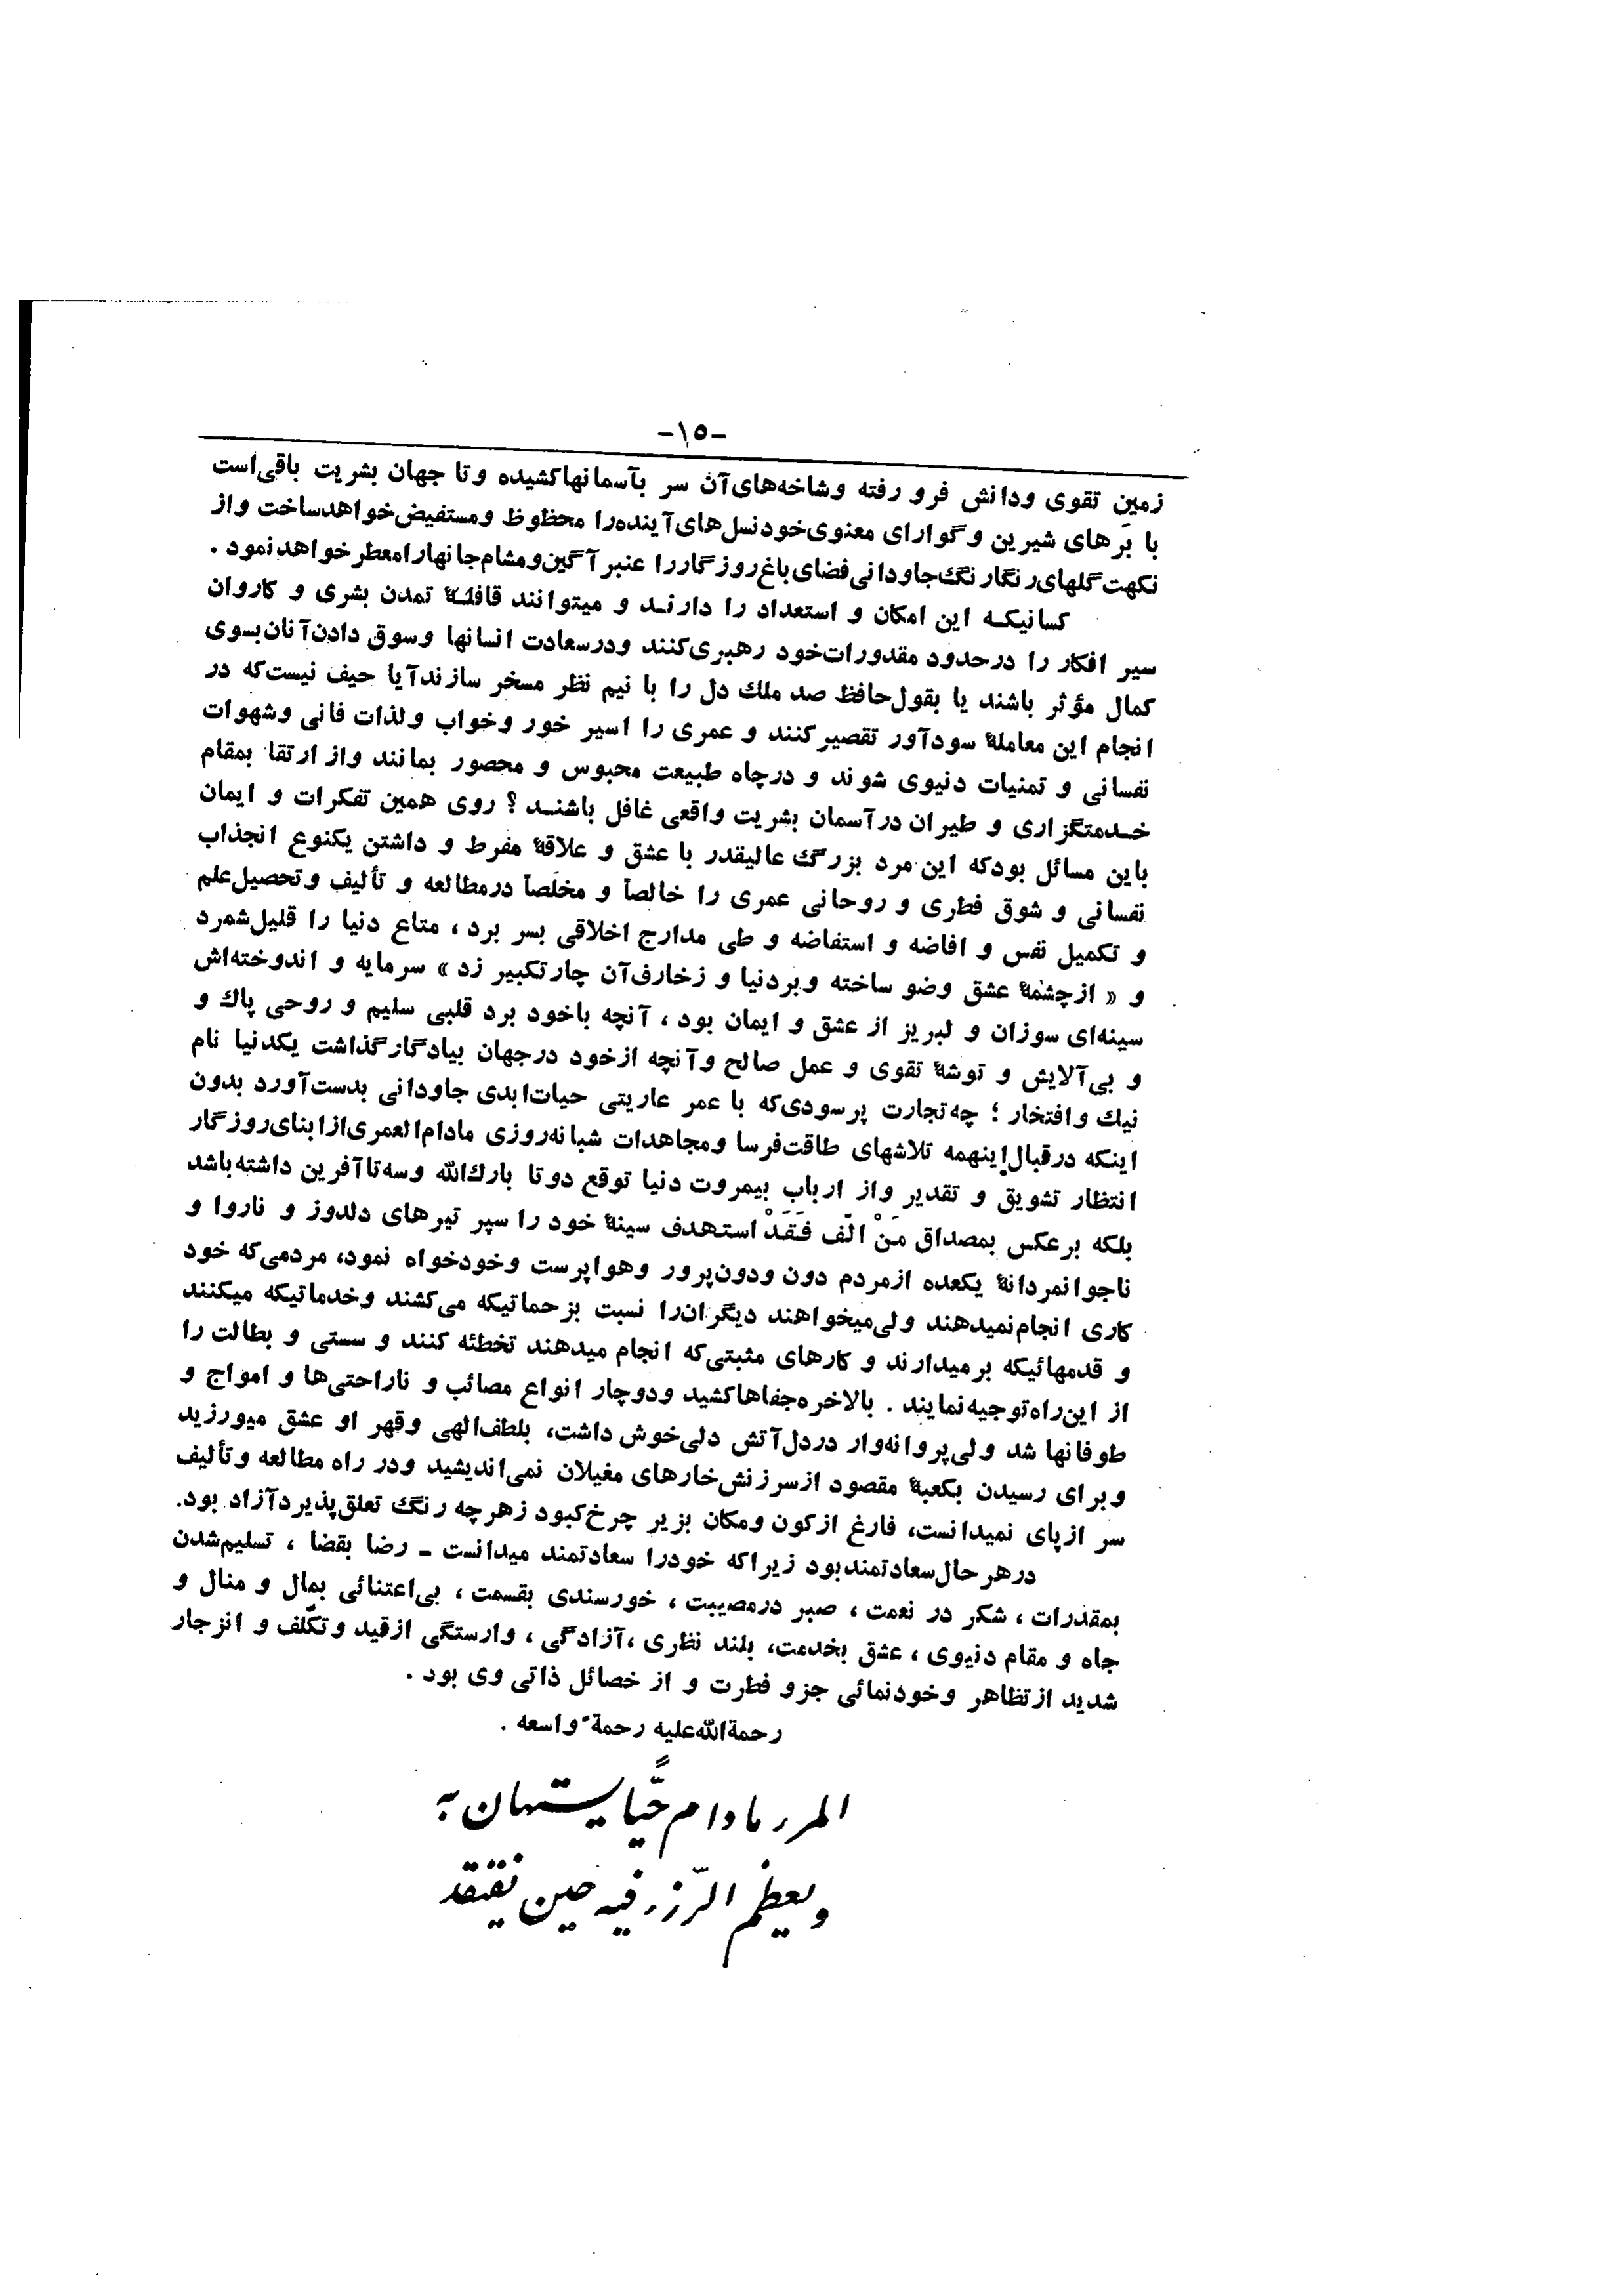 -۱۵-
زمین تقوی ودانش فرو رفته وشاخه‌های‌آن سر بآسمانهاکشیده وتا جهان بشریت باقی‌است
با بَرهای شیرین وگوارای معنوی‌خودنسل‌های‌آینده‌را محظوظ ومستفیض‌خواهدساخت واز
نکهت‌گلهای‌رنگارنگ‌جاودانی‌فضای‌باغ‌روزگاررا عنبرآگین‌ومشام‌جانهارامعطرخواهدنمود .
کسانیکه این امکان و استعداد را دارند و میتوانند قافلهٔ تمدن بشری و کاروان
سیر افکار را درحدود مقدورات‌خود رهبری‌کنند ودرسعادت انسانها وسوق دادن‌آنان‌بسوی
کمال مؤثر باشند یا بقول‌حافظ صد ملك دل را با نیم نظر مسخر سازندآیا حیف نیست‌که در
انجام این معاملهٔ سودآور تقصیرکنند و عمری را اسیر خور وخواب ولذات فانی وشهوات
نفسانی و تمنیات دنیوی شوند و درچاه طبیعت محبوس و محصور بمانند واز ارتقا بمقام
خدمتگزاری و طیران درآسمان بشریت واقعی غافل باشند ؟ روی همین تفکرات و ایمان
باین مسائل بودکه این مرد بزرگ عالیقدر با عشق و علاقهٔ مفرط و داشتن یکنوع انجذاب
نفسانی و شوق فطری و روحانی عمری را خالصاً و مخلصاً درمطالعه و تألیف وتحصیل‌علم
و تکمیل نفس و افاضه و استفاضه و طی مدارج اخلاقی بسر برد ، متاع دنیا را قلیل‌شمرد
و « ازچشمهٔ عشق وضو ساخته وبردنیا و زخارف‌آن چارتکبیر زد » سرمایه و اندوخته‌اش
سینه‌ای سوزان و لبریز از عشق و ایمان بود ، آنچه باخود برد قلبی سلیم و روحی پاك و
و بی‌آلایش و توشهٔ تقوی و عمل صالح وآنچه ازخود درجهان بیادگارگذاشت یکدنیا نام
نیك وافتخار ؛ چه‌تجارت پرسودی‌که با عمر عاریتی حیات‌ابدی جاودانی بدست‌آورد بدون
اینکه درقبال‌اینهمه تلاشهای طاقت‌فرسا ومجاهدات شبانه‌روزی مادام‌العمری‌ازابنای‌روزگار
انتظار تشویق و تقدیر واز ارباب بیمروت دنیا توقع دوتا بارك‌الله وسه‌تاآفرین داشته‌باشد
بلکه برعکس بمصداق مَنْ الّف فَقَدْ استهدف سینهٔ خود را سپر تیرهای دلدوز و ناروا و
ناجوانمردانهٔ یکعده ازمردم دون ودون‌پرور وهواپرست وخودخواه نمود، مردمی‌که خود
کاری انجام‌نمیدهند ولی‌میخواهند دیگران‌را نسبت بزحماتیکه می‌کشند وخدماتیکه میکنند
و قدمهائیکه برمیدارند و کارهای مثبتی‌که انجام میدهند تخطئه کنند و سستی و بطالت را
از این‌راه‌توجیه‌نمایند . بالاخره‌جفاهاکشید ودوچار انواع مصائب و ناراحتی‌ها و امواج و
طوفانها شد ولی‌پروانه‌وار دردل‌آتش دلی‌خوش داشت، بلطف‌الهی وقهر او عشق میورزید
وبرای رسیدن بکعبهٔ مقصود ازسرزنش‌خارهای مغیلان نمی‌اندیشید ودر راه مطالعه وتألیف
سر ازپای نمیدانست، فارغ ازکون ومکان بزیر چرخ‌کبود زهرچه رنگ تعلق‌پذیردآزاد بود.
درهرحال‌سعادتمندبود زیراکه خودرا سعادتمند میدانست ـ رضا بقضا ، تسلیم‌شدن
بمقدرات ، شکر در نعمت ، صبر درمصیبت ، خورسندی بقسمت ، بی‌اعتنائی بمال و منال و
جاه و مقام دنیوی ، عشق بخدمت، بلند نظری ،آزادگی ، وارستگی ازقید وتکلّف و انزجار
شدید ازتظاهر وخودنمائی جزو فطرت و از خصائل ذاتی وی بود .
رحمةالله‌علیه رحمةً واسعه .
المرء مادام حَیّاً یستهان به
و یعظم الرّزء فیه حین یفتقد